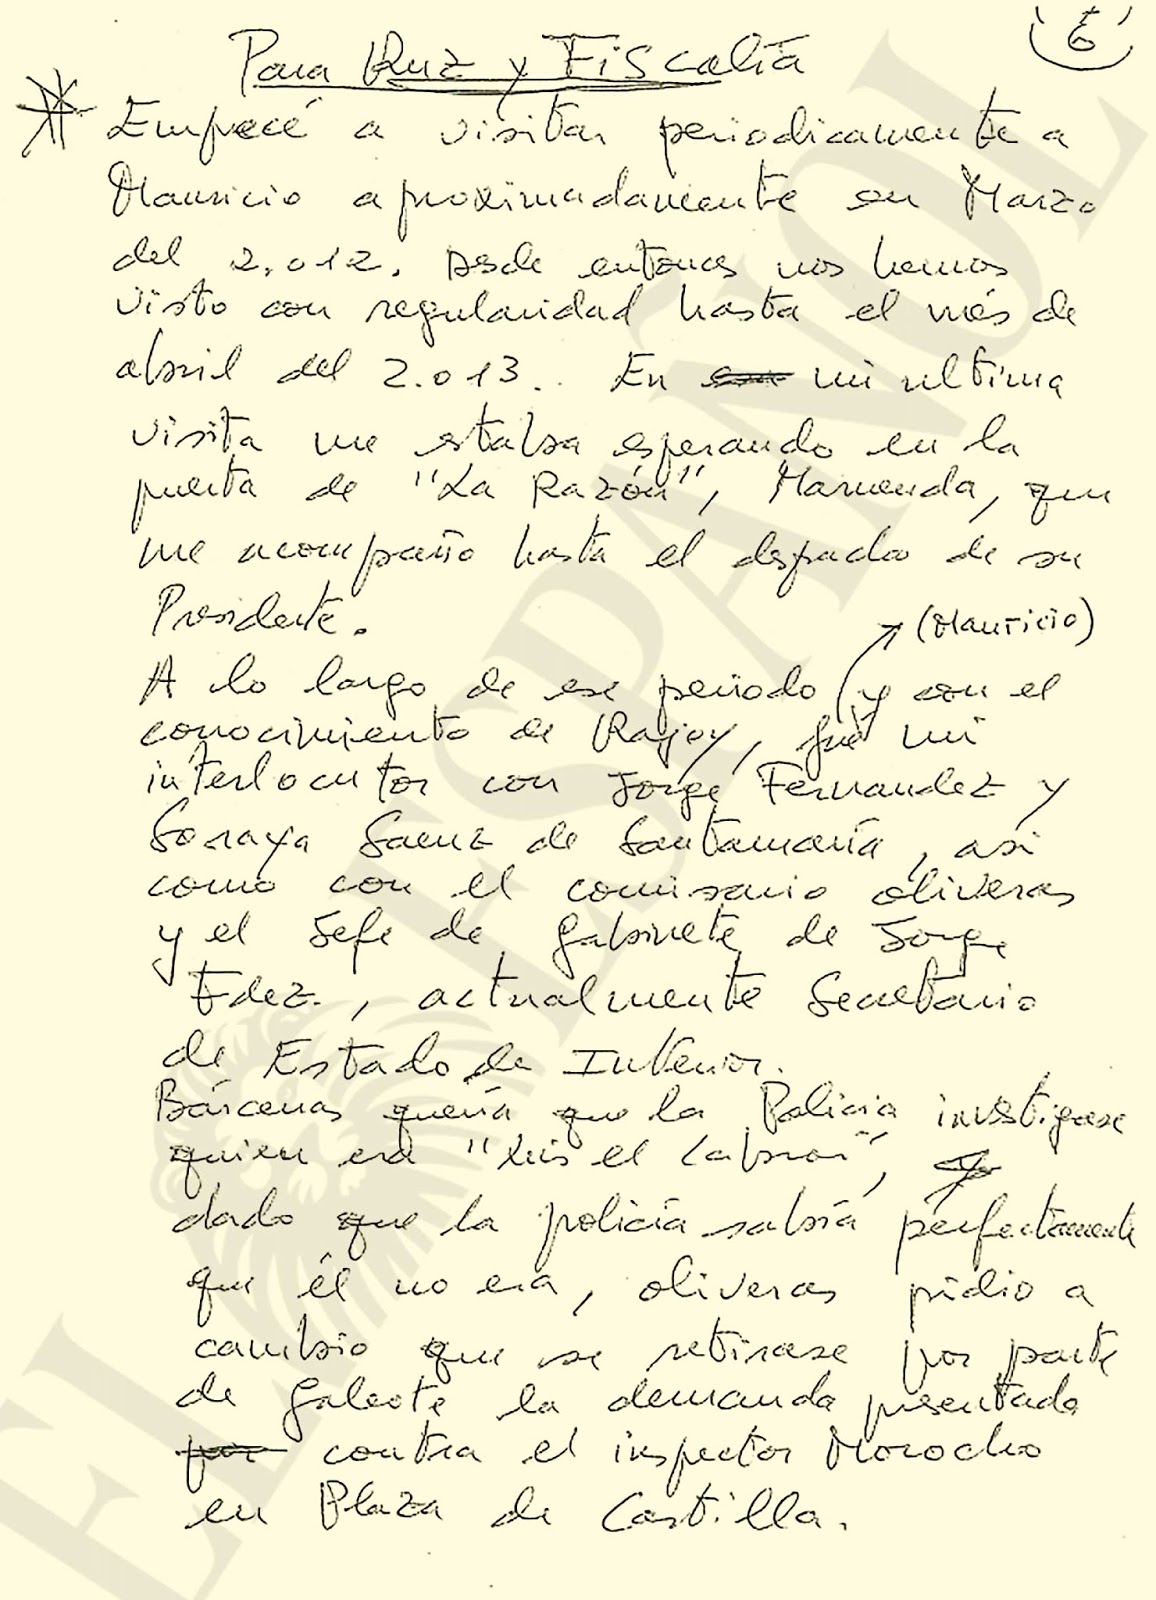 6
Para Ruz y Fiscalía
* Empecé a visitar periodicamente a
Mauricio aproximadamente en Marzo
del 2.012. Desde entonces nos hemos
visto con regularidad hasta el més de
abril del 2.013.. En mi ultima
visita me estaba esperando en la
puerta de "La Razón", Maruenda, que
me acompaño hasta el despacho de su
Presidente.
(Mauricio)
A lo largo de ese periodo y con el
conocimiento de Rajoy, fué mi
interlocutor con Jorge Fernandez y
Soraya Saenz de Santamaría, asi
como con el comisario oliveras
y el Jefe de Gabinete de Jorge
Fdez., actualmente Secretario
de Estado de Interior.
Bárcenas quería que la Policia investigase
quien era "Luis el Cabron",
dado que la policía sabía perfectamente
que él no era, oliveras pidio a
cambio que se retirase por parte
de Galeote la demanda presentada
contra el inspector Morocho
en Plaza de Castilla.
EL ESPAÑOL